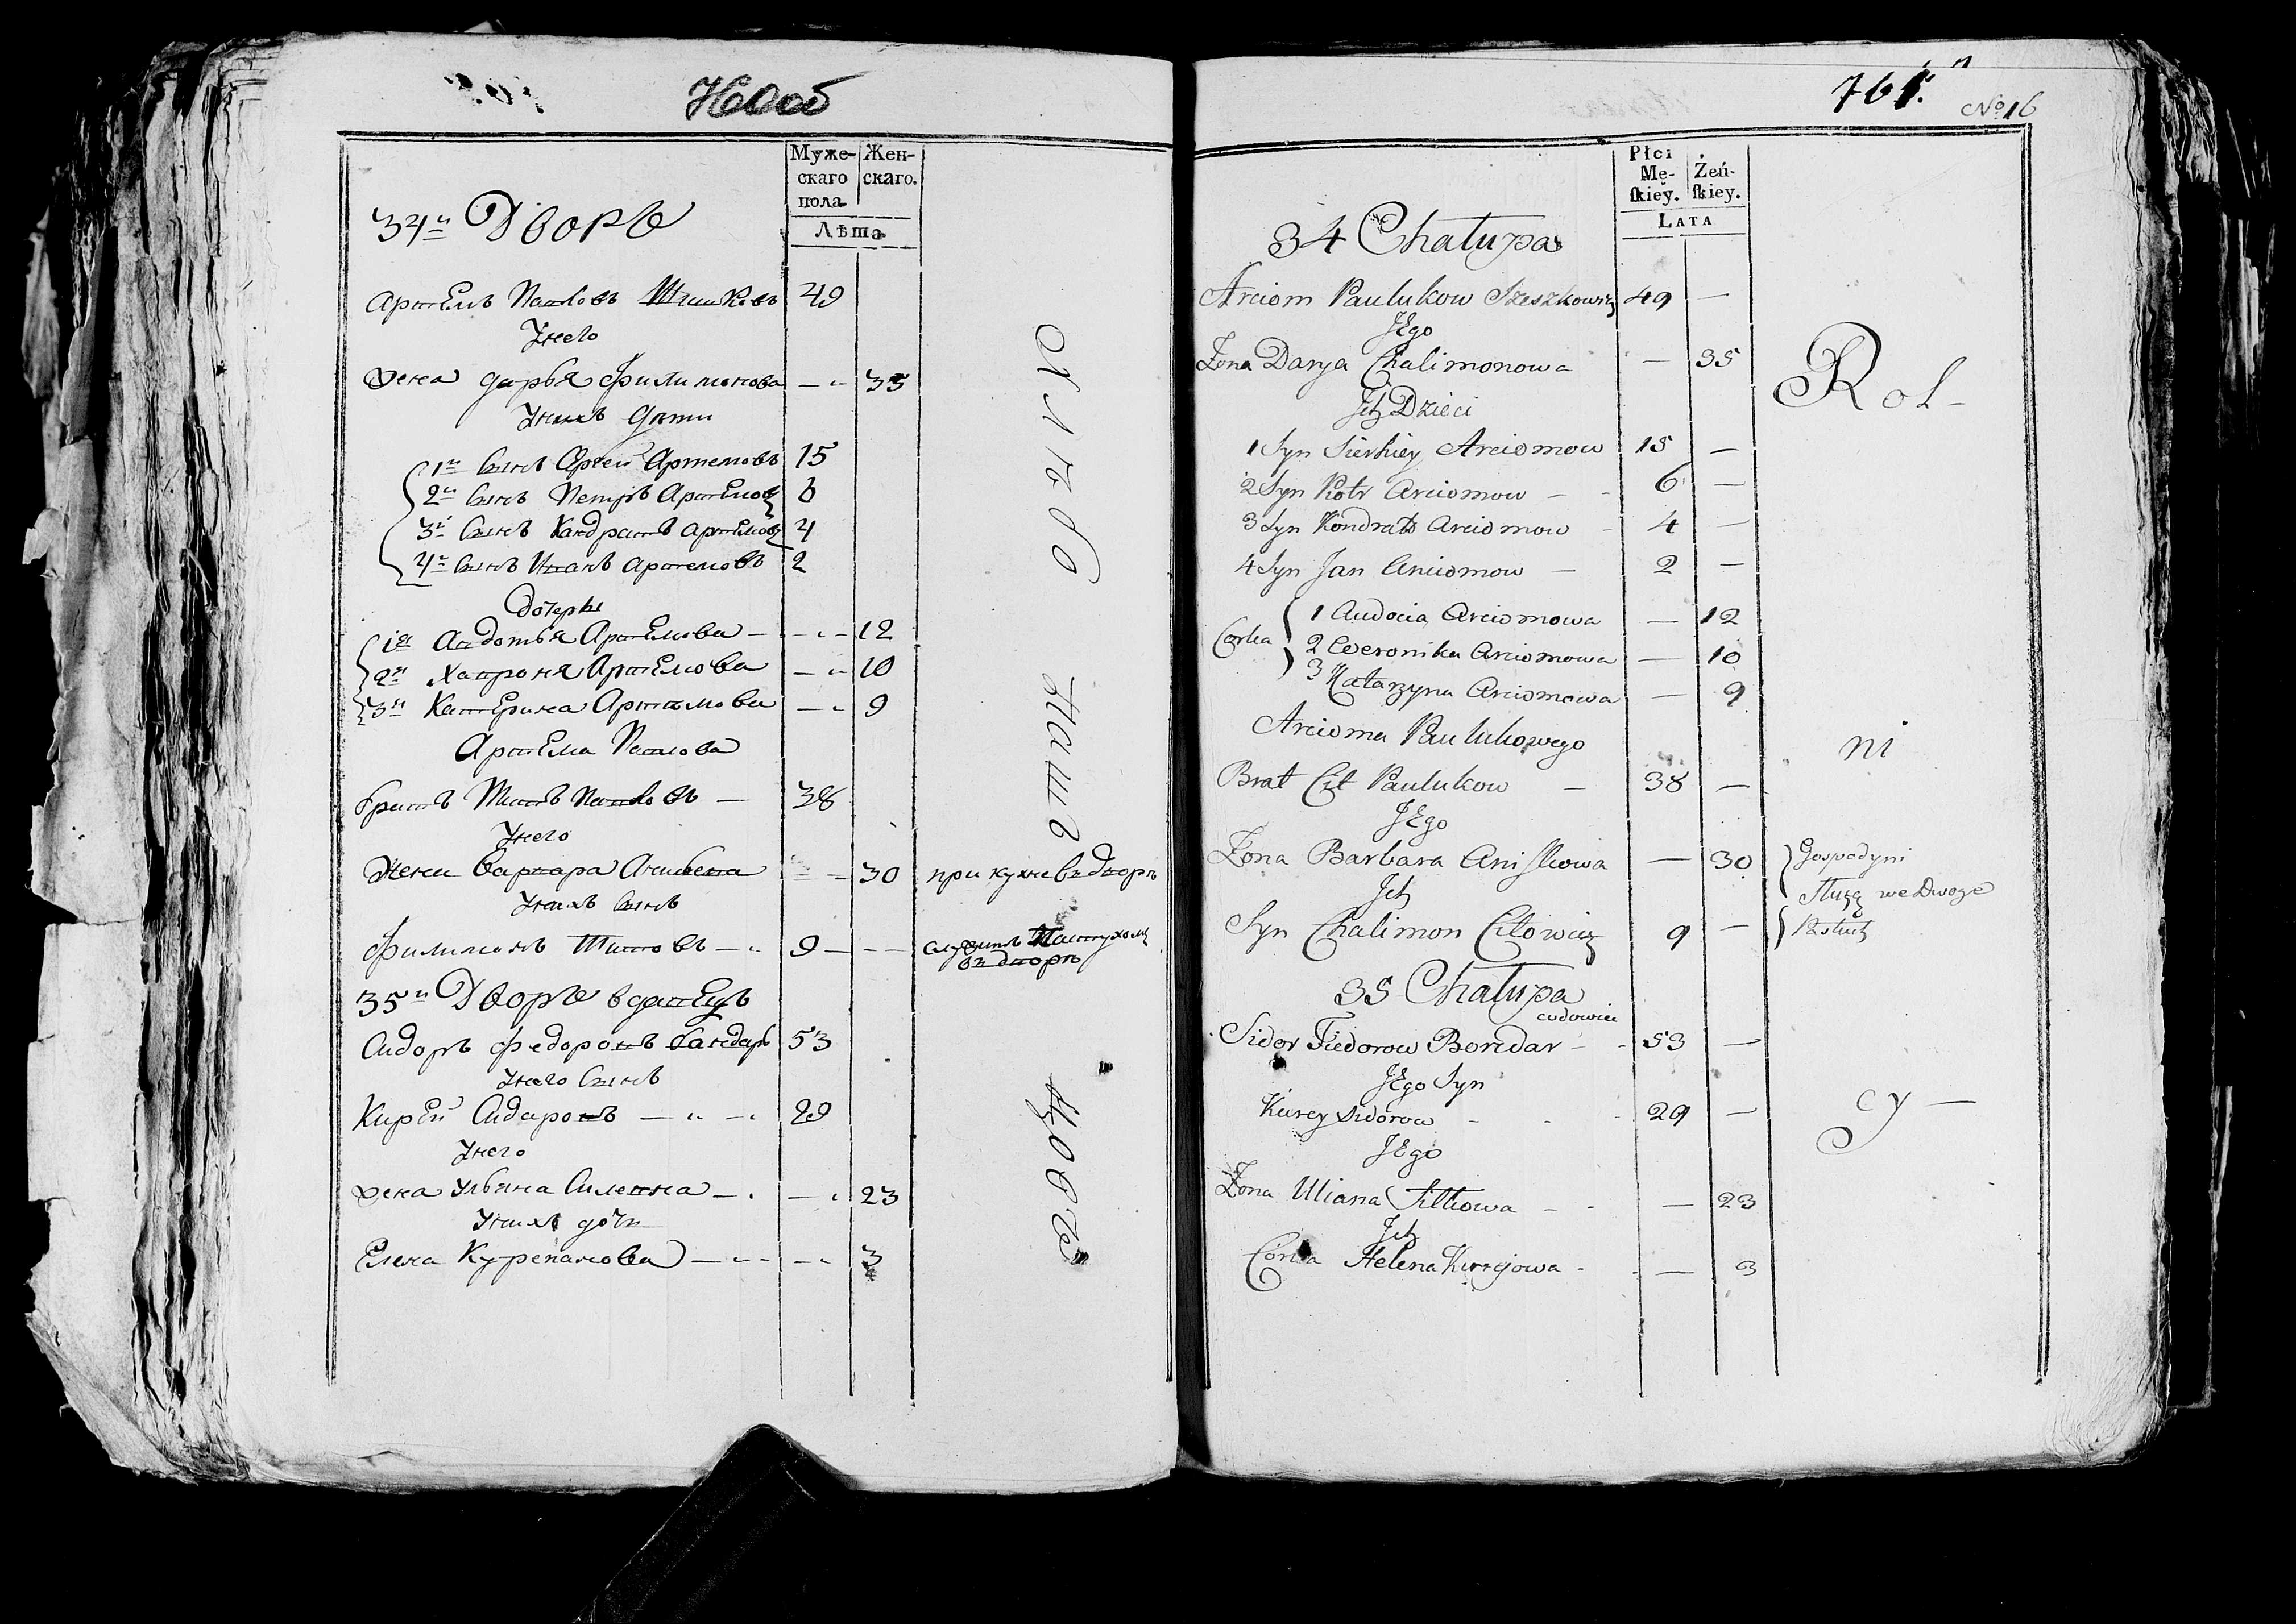 Муже-
скаго
пола
Жен-
скаго.
Лѣта
34й Дворъ
Артемъ Павловъ 49
Унего
жена дарья филимонова — 35
Унихъ дѣти
1й сынъ Сергей Артемовъ 15
2й сынъ Петръ Артемовъ 6
3й сынъ Кандратъ артемовъ 4
4й сынъ Иванъ артемовъ 2
дочери
1я Авдотья Артемова — 12
2я Хавроня Артемова — 10
3я Катерина Артемова — 9
Артема Павлова
братъ Титъ Павловъ — 38
Унего
жена Варвара — 30 при кухне вдворѣ
Унихъ сынъ
филимонъ Титовъ — 9 — служитъ Пастухомъ
въ дворѣ
35й Дворъ вдовецъ
Сидоръ федоровъ бандарь 53
Унего сынъ
Кирей Сидаровъ — 29
Унего
жена ульяна — 23
Унихъ дочь
Елена — 3
761.
No 16
Płci
Mę-
ſkiey.
Żeń-
ſkiey.
LATA
34 Chałupa
Arciom Paulukow Szeszkowicz 49 —
JEgo
Żona Darja Chalimonowa — 35
Jch Dzieci
1 Syn Sierhiey Arciomow 15 —
2 Syn Piotr Arciomow — 6 —
3 Syn Kondrat Arciomow 4 —
4 Syn Jan Arciomow — 2 —
Corka
1 Audocia Arciomowa — 12
2 Weronika Arciomowa — 10
3 Katarzyna Arciomowa — 9
Arcioma Paulukowego
Brat Cit Paulukow — 38 —
JEgo
Żona Barbara Aniſkowa — 30 Gospodyni
Służą we Dworze
Jch
Syn Chalimon Citowicz 9 — Pastuch
35 Chałupa
wdowiec
Sidor Fiedorow Bondar 53 —
JEgo Syn
Kirey Sidorow 29 —
JEgo
Żona Uliana — 23
Jch
Córka Helena Kirejowa — 3
Rol-
ni
cy —